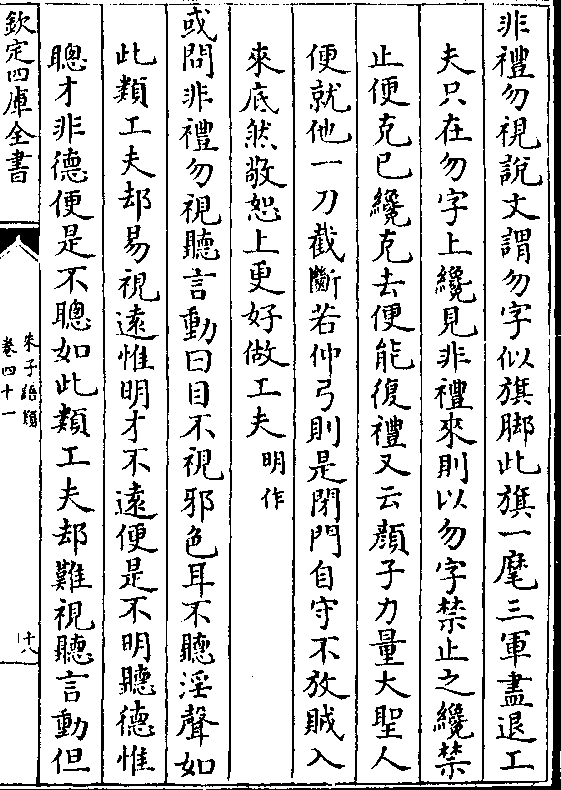 非禮勿視說文謂勿字似旗脚此旗一麾三軍盡退工
夫只在勿字上纔見非禮來則以勿字禁止之纔禁
止便克已纔克去便能復禮又云顔子力量大聖人
便就他一刀截斷若仲弓則是閉門自守不放賊入
來底然敬恕上更好做工夫 明作
或問非禮勿視聽言動曰目不視邪色耳不聽淫聲如
此類工夫却易視逺惟明才不逺便是不明聽德惟
聰才非德便是不聰如此類工夫却難視聽言動但
欽定四庫全書
朱子語類
卷四十一
十八